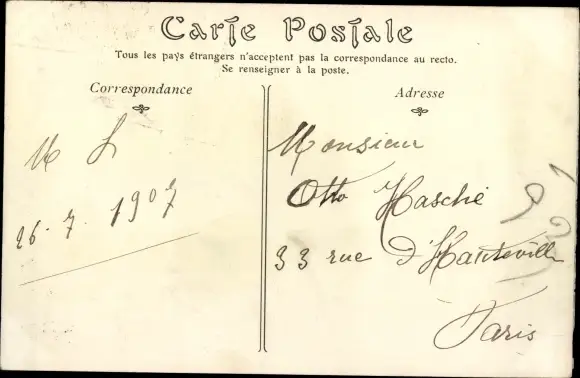 Carte Postale
Tous les pays étrangers n'acceptent pas la correspondance au recto.
Se renseigner à la poste.
Correspondance
Adresse
M L
26. 7. 1907
Monsieur
Otto Hasché
33 rue d'Hauteville
Paris